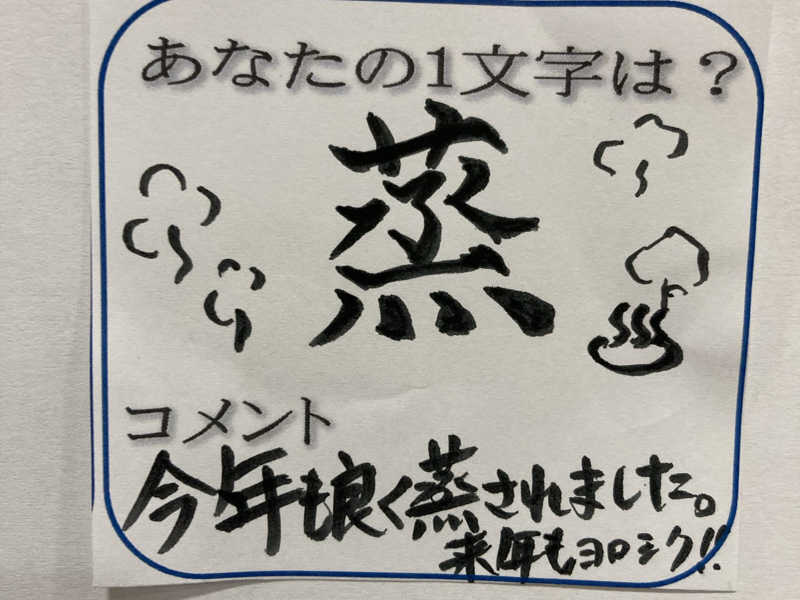 あなたの1文字は？
蒸
コメント
今年も良く蒸されました。
来年もヨロシク!!